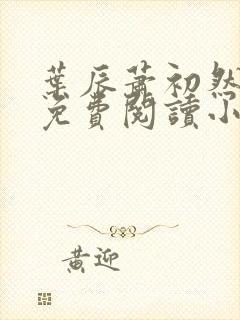 葉辰蕭初然
免費閱讀小
黃迎